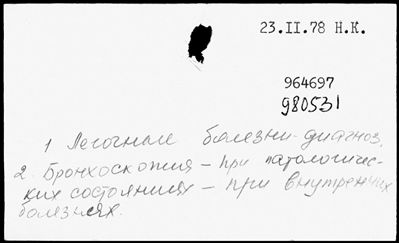 23.II.78 Н.К.
964697
980531
1 Легочные болезни-диагноз.
2. Бронхоскопия – при патологичес-
ких состояниях – при внутренних
болезнях.